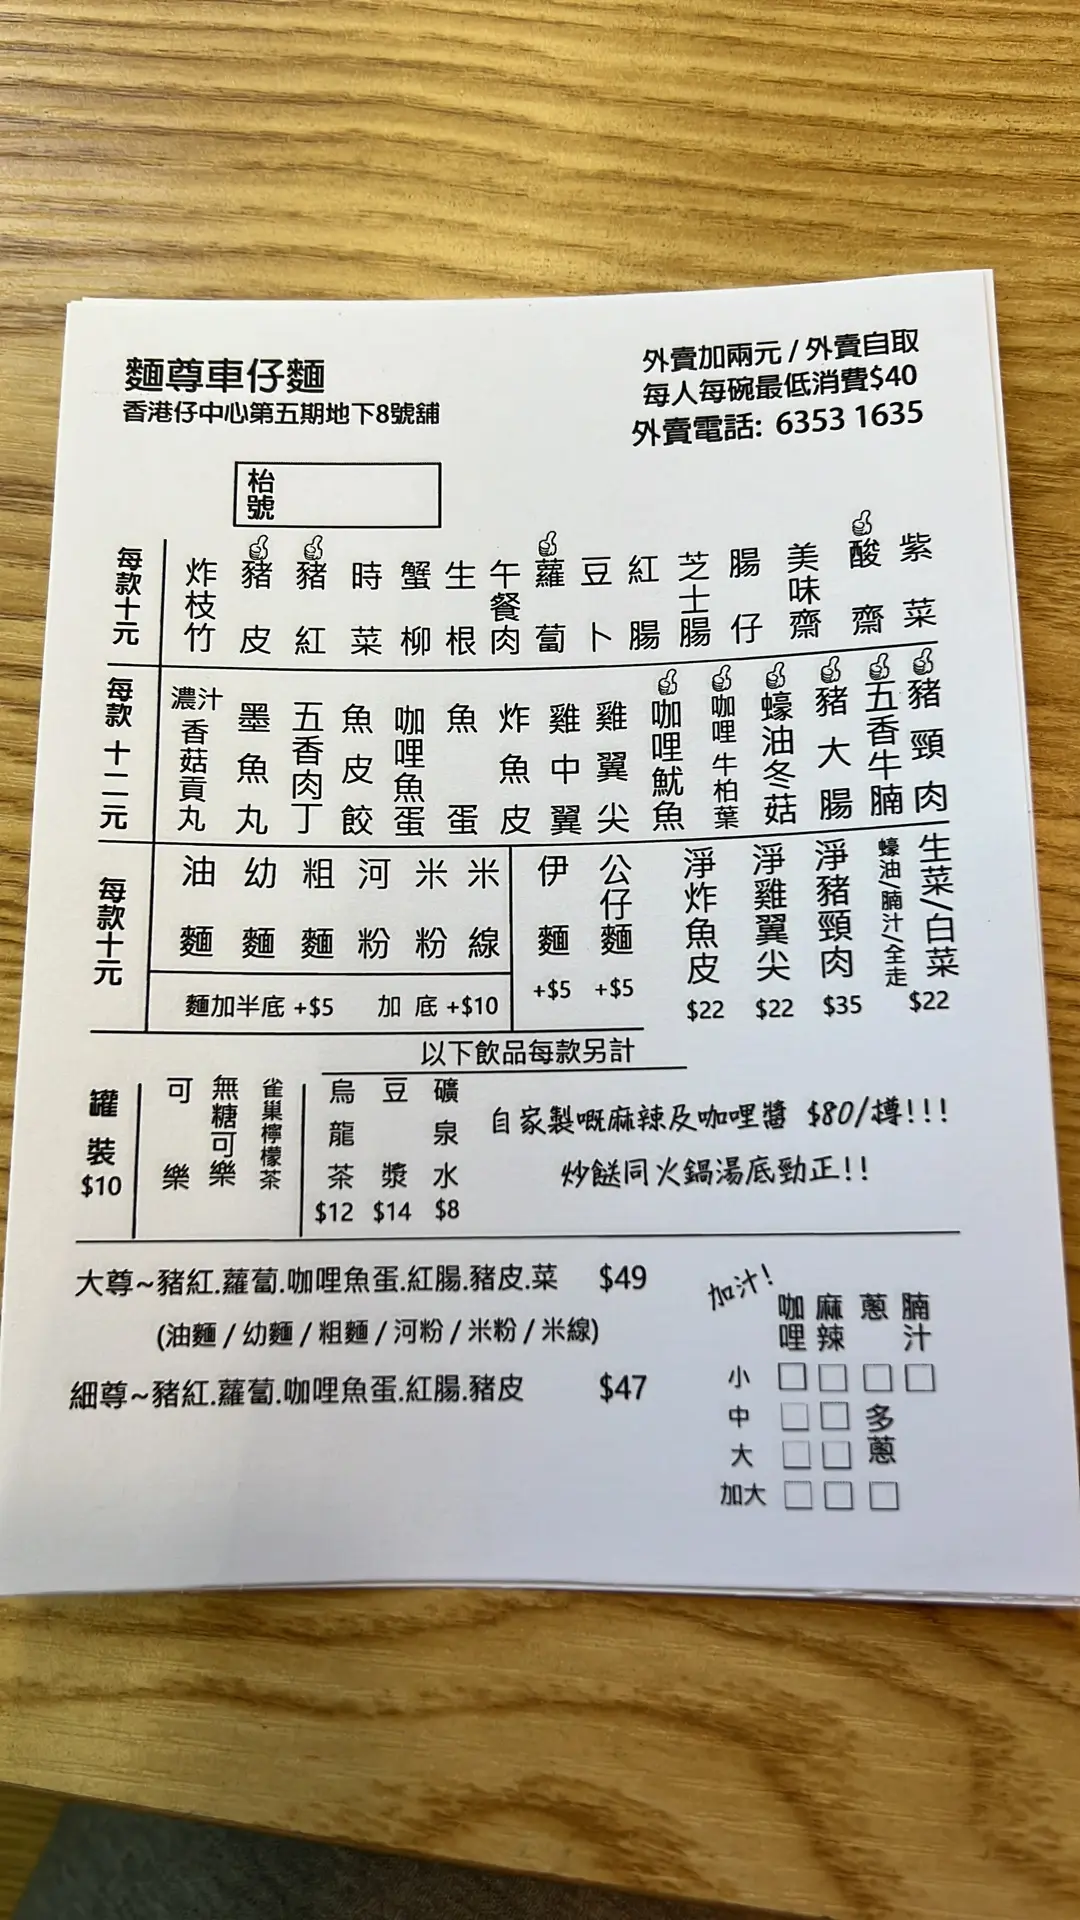 麵尊車仔麵
香港仔中心第五期地下8號舖
外賣加兩元 / 外賣自取
每人每碗最低消費$40
外賣電話: 6353 1635
枱號
每款十元
炸枝竹
豬皮
豬紅
時菜
蟹柳
生根
午餐肉
蘿蔔
豆卜
紅腸
芝士腸
腸仔
美味齋
酸齋
紫菜
每款十二元
濃汁香菇貢丸
墨魚丸
五香肉丁
魚皮餃
咖哩魚蛋
魚蛋
炸魚皮
雞中翼
雞翼尖
咖哩魷魚
咖哩牛柏葉
蠔油冬菇
豬大腸
五香牛腩
豬頸肉
每款十元
油麵
幼麵
粗麵
河粉
米粉
米線
麵加半底 +$5
加 底 +$10
伊麵 +$5
公仔麵 +$5
淨炸魚皮 $22
淨雞翼尖 $22
淨豬頸肉 $35
蠔油/腩汁/全走
生菜/白菜 $22
以下飲品每款另計
罐裝 $10
可樂
無糖可樂
雀巢檸檬茶
烏龍茶 $12
豆漿 $14
礦泉水 $8
自家製嘅麻辣及咖哩醬 $80/樽!!!
炒餸同火鍋湯底勁正!!
大尊~豬紅.蘿蔔.咖哩魚蛋.紅腸.豬皮.菜 $49
(油麵 / 幼麵 / 粗麵 / 河粉 / 米粉 / 米線)
細尊~豬紅.蘿蔔.咖哩魚蛋.紅腸.豬皮 $47
加汁!
咖哩 麻辣 蔥 腩汁
小
中
大
加大
多蔥